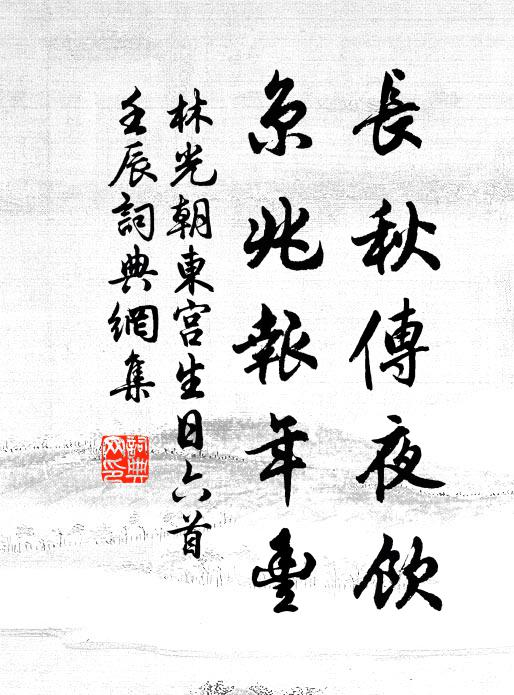 長秋傳夜飲
京兆報年豐
林光朝東宮生日六首
壬辰詞典網集
詞典網印